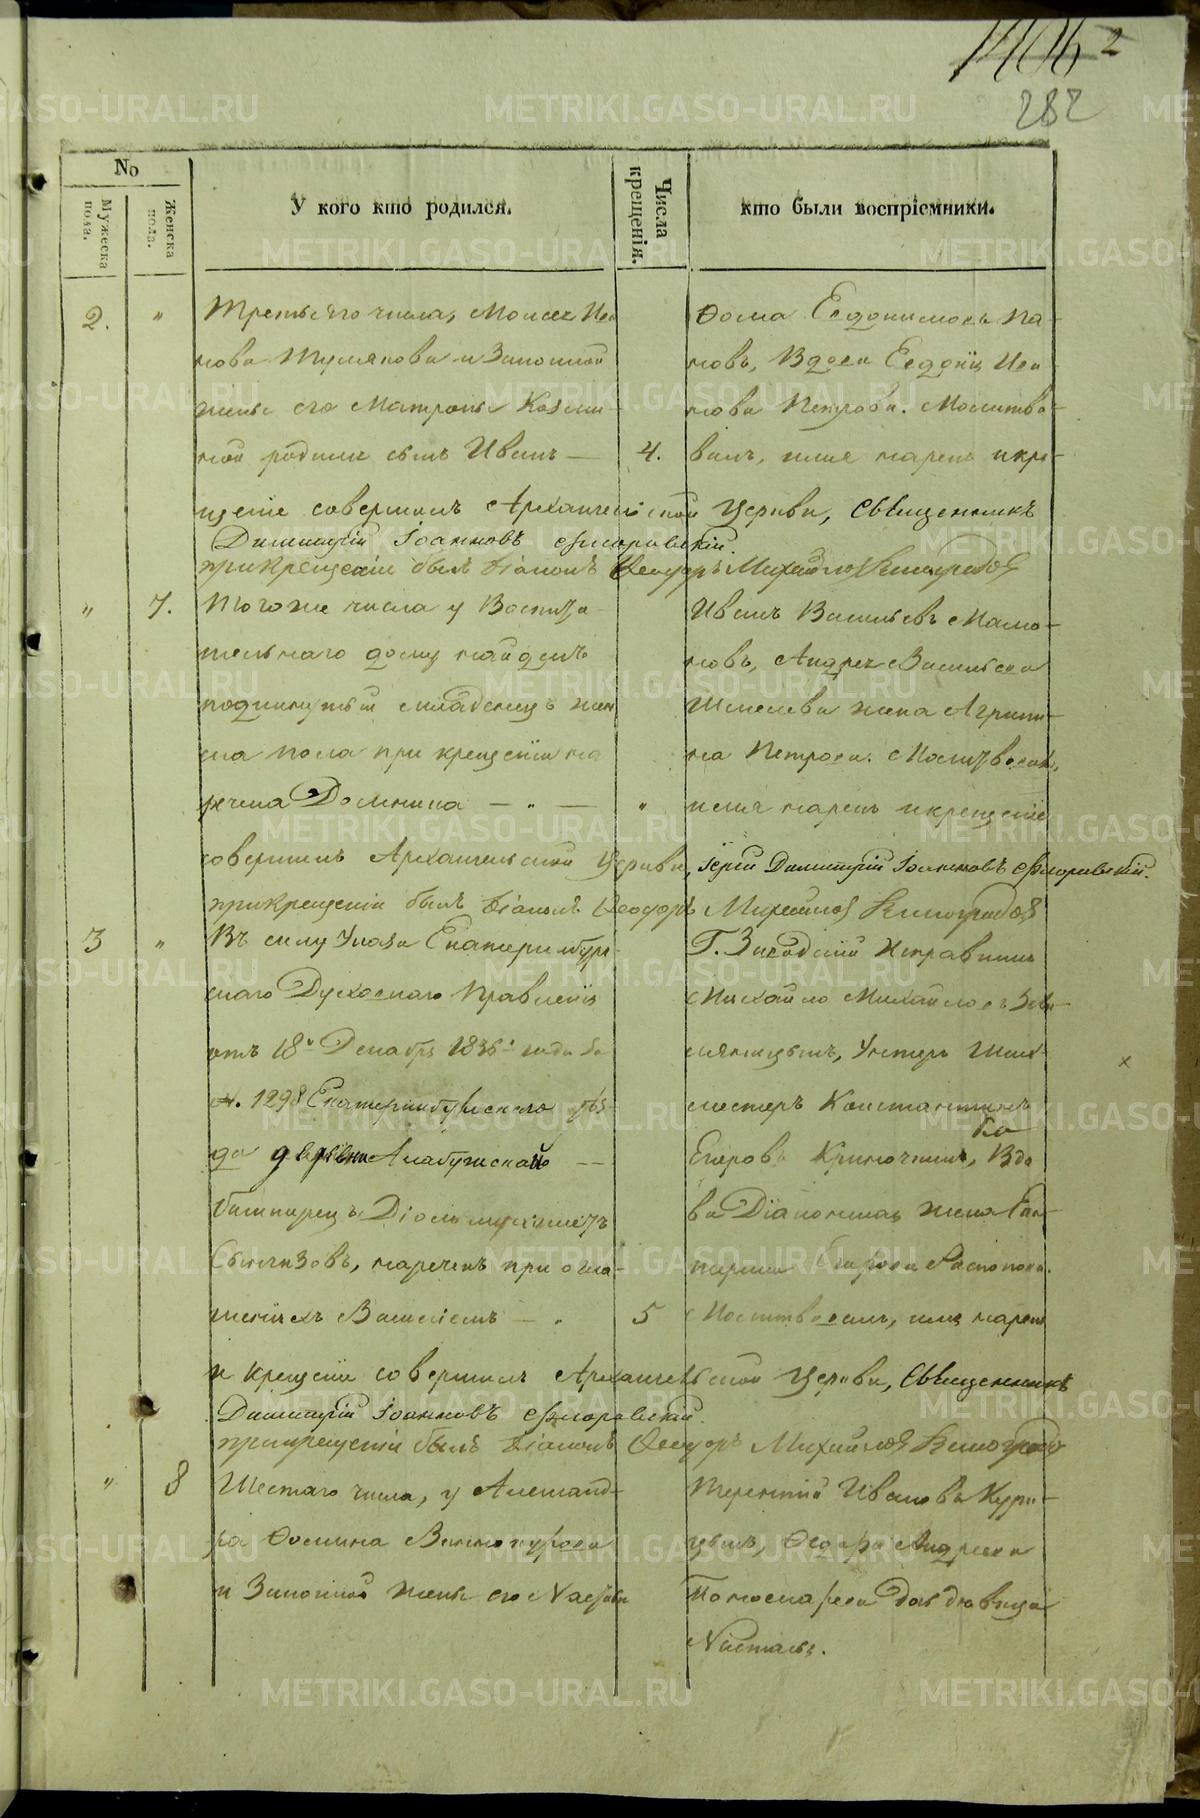 1406 2
282
No
Мужеска пола.
Женска пола.
У кого кто родился.
Числа крещенія.
кто были воспріемники.
2. " Третьяго числа, Моисея Ива
нова Тумякова и Законной
жены его Матроны Козми-
ной родился сынъ Иванъ — 4.
Фома Евдокимовъ Па-
новъ, Вдова Евдокія Ива
нова Петрова. Молитво-
валъ, имя нарекъ и кре-
щеніе совершилъ Архангельской Церкви, Священникъ
Димитрій Іоанновъ Флоровскій.
при крещеніи былъ діаконъ Ѳеодоръ Михайловъ Виноградовъ
" 7. Того же числа у Воспита
тельнаго дому найденъ
подкинутый младенецъ жен
ска пола при крещеніи на
речена Домника — " — "
Иванъ Васильевъ Мамо-
новъ, Андрея Васильева
Шмелева жена Агрипи-
на Петрова. Молитвовалъ,
имя нарекъ и крещеніе
совершилъ Архангельской Церкви, Іерей Димитрій Іоанновъ Флоровскій.
при крещеніи былъ діаконъ Ѳеодоръ Михайловъ Виноградовъ
3 " Въ силу Указа Екатеринбург-
скаго Духовнаго Правленія
отъ 18го Декабря 1836го года за
№. 1298 Екатеринбургскаго уѣз-
да деревни Алабужской —
башкирецъ
нареченъ при огла-
шеніяхъ Василіемъ — " 5
Г. Заводскій Исправникъ
Михайло Михайловъ
Унтеръ Ших
мейстеръ Константинъ
Егоровъ Крючкинъ, Вдо
ва Діаконская жена Ека-
терина
Молитвовалъ, имя нарекъ
и крещеніе совершилъ Архангельской Церкви, Священникъ
Димитрій Іоанновъ Флоровскій.
при крещеніи былъ діаконъ Ѳеодоръ Михайловъ Виноградовъ
" 8 Шестаго числа, у Александ-
ра Фомина Винокурова
и Законной жены его
Терентій Ивановъ Кури-
цынъ, Ѳедора Андреева
Пономарева дочь дѣвица
Наталья.
METRIKI.GASO-URAL.RU